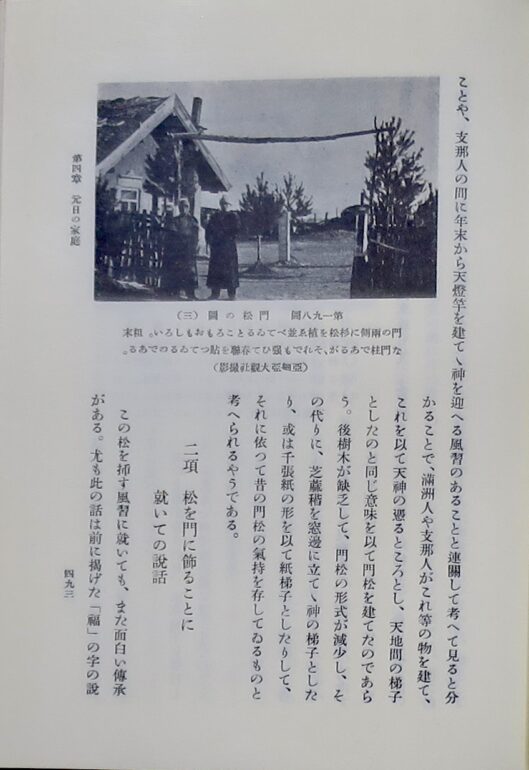 ことや、支那人の間に年末から天燈竿を建てゝ神を迎へる風習のあることと連關して考へて見ると分
かることで、滿洲人や支那人がこれ等の物を建て、
これを以て天神の憑るところとし、天地間の梯子
としたのと同じ意味を以て門松を建てたのであら
う。後樹木が缺乏して、門松の形式が減少し、そ
の代りに、芝蔴稭を窓邊に立てゝ神の梯子とした
り、或は千張紙の形を以て紙梯子としたりして、
それに依つて昔の門松の氣持を存してゐるものと
考へられるやうである。
第一九八圖　門松の圖（三）
門の兩側に杉松を植ゑ並べてゐることもおもしろい。粗末
な門柱であるが、それでも强ひて春聯を貼つてゐるのである。
（亞細亞大觀社撮影）
二項　松を門に飾ることに
就いての說話
この松を挿す風習に就いても、また面白い傳承
がある。尤も此の話は前に揭げた「福」の字の說
第四章　元日の家庭
四九三